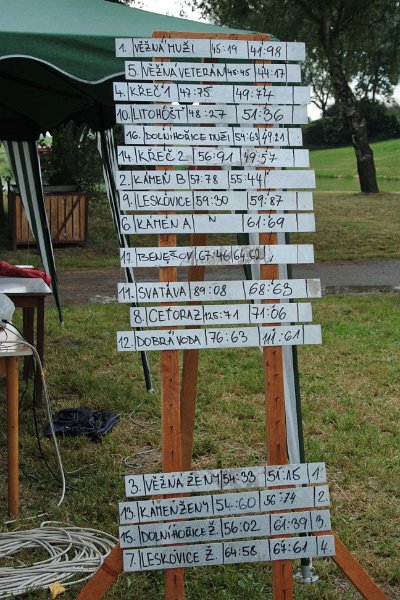 1. VĚŽNÁ MUŽI 45:19 41:98
5. VĚŽNÁ VETERÁN 45:45 44:17
4. KŘEČ 1 47:75 49:74
10. LITOHOŠŤ 48:27 51:36
16. DOLNÍ HOŘICE MUŽI 54:63 49:21
14. KŘEČ 2 56:91 49:57
2. KÁMEN B 57:78 55:44
9. LESKOVICE 59:30 59:87
6. KÁMEN A N 61:69
17. BENEŠOV 67:46 64:62
11. SVATÁVA 89:08 68:63
8. CETORAZ 125:71 71:06
12. DOBRÁ VODA 76:63 111:61
3. VĚŽNÁ ŽENY 54:33 51:15 1.
13. KÁMEN ŽENY 54:60 56:74 2.
15. DOLNÍ HOŘICE Ž. 56:02 61:39 3.
7. LESKOVICE Ž. 64:56 67:61 4.